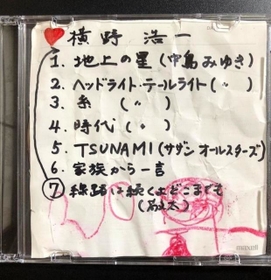 横野 浩一
1. 地上の星(中島みゆき)
2. ヘッドライト・テールライト(〃)
3. 糸 (〃)
4. 時代 (〃)
5. TSUNAMI(サザンオールスターズ)
6. 家族から一言
⑦ 線路は続くよどこまでも
maxell